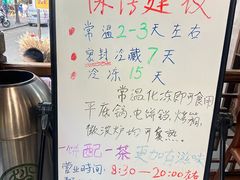 保存建议
常温2-3天左右
密封冷藏7天
冷冻15天
常温化冻即可食用
平底锅,电饼铛,烤箱,
微波炉均可复热.
一饼配一茶 更加滋味
营业时间:8:30—20:00左右